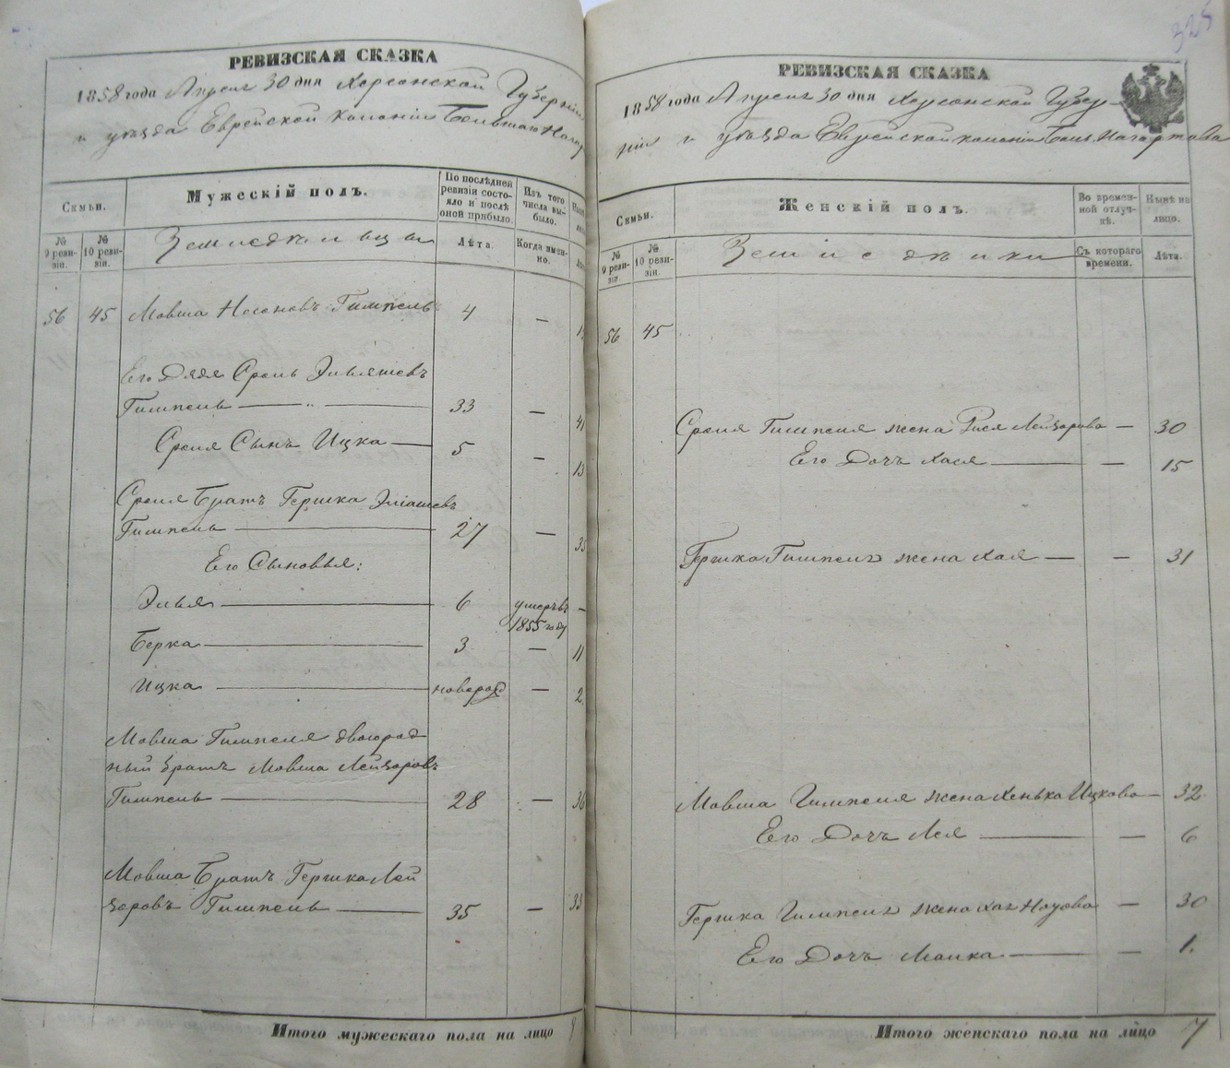 РЕВИЗСКАЯ СКАЗКА
1858 года Апреля 30 дня Херсонской Губерніи
и уѣзда Еврейской колоніи
Семьи.
№ 9 ревизіи.
№ 10 ревизіи.
Мужескій полъ.
По послѣдней ревизіи состояло и послѣ оной прибыло.
Изъ того числа выбыло.
Земледѣльцы
Лѣта
Когда именно.
56 45 Мовша Носоновъ Гимпель 4 —
Его Дядя Сроль Эльяшевъ
Гимпель — 33 — 41
Сроля Сынъ Ицка — 5 — 13
Сроля Братъ Гершка Эліашевъ
Гимпель — 27 — 35
Его Сыновья:
Элья — 6 умеръ въ 1855 году —
Берка — 3 — 11
Ицка — новорожд — 2
Мовша Гимпеля двоюрод
ный братъ Мовша Лейзоровъ
Гимпель — 28 — 36
Мовша Братъ Гершка Лей
зоровъ Гимпель — 35 — 33
Итого мужескаго пола на лицо
325
РЕВИЗСКАЯ СКАЗКА
1858 года Апреля 30 дня Херсонской Губер
ніи и уѣзда Еврейской колоніи Боль. Нагартава
Семьи.
№ 9 ревизіи.
№ 10 ревизіи.
Женскій полъ.
Во временной отлучкѣ.
Нынѣ на лицо.
Съ котораго времени.
Лѣта.
56 45
Сроля Гимпеля жена Рися Лейзорова — 30
Его Дочь Хася — — 15
Гершка Гимпеля жена Хая — — 31
Мовша Гимпеля жена Хенька Ицкова — 32
Его Дочь Лея — — 6
Гершка Гимпеля жена — 30
Его Дочь — — 1.
Итого женскаго пола на лицо 7